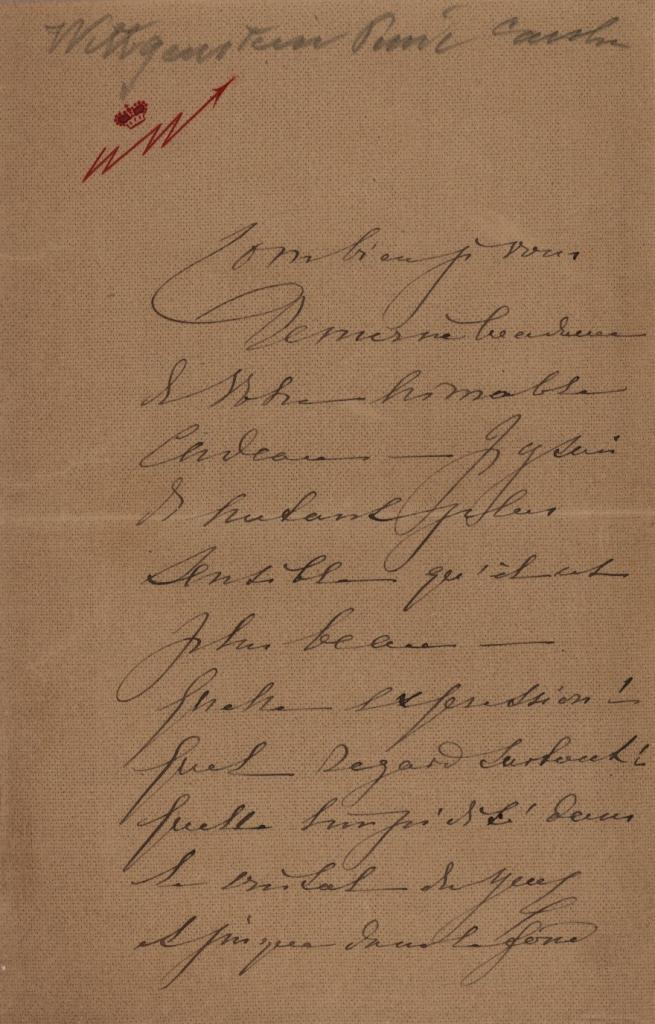 Wittgenstein
Combien je vous
remercie
de votre aimable
Cadeau — J'y suis
d'autant plus
sensible qu'il est
plus beau —
quelle expression!
quel regard surtout!
quelle limpidité dans
le cristal des yeux
et jusque dans le fond